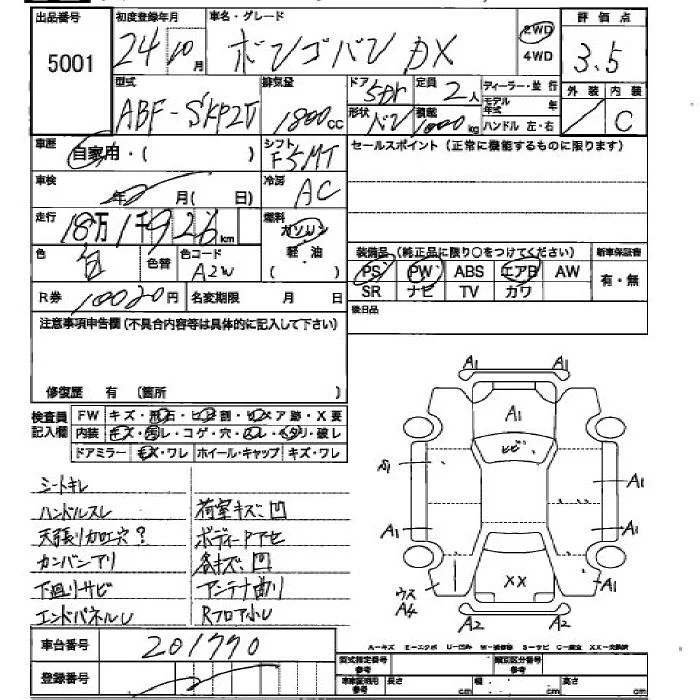 出品番号
5001
初度登録年月
24 10月
車名・グレード
ボンゴバン DX
2WD
4WD
評価点
3.5
型式
ABF-SKP2V
排気量
1800cc
ドア 5Dr
定員 2人
形状 バン
積載 1000kg
ディーラー・並行
モデル年式 年
ハンドル 左・右
外装 内装
C
車歴
自家用・( )
シフト
F5MT
セールスポイント（正常に機能するものに限ります）
車検
年 月（ 日）
冷房
AC
走行
18万1千926km
燃料
ガソリン
軽・油
( )
色
白
色替
色コード
A2W
装備品（純正品に限り○をつけてください）
新車保証書
PS PW ABS エアB AW
SR ナビ TV カワ
有・無
R券 10020円 名変期限 月 日
後日品
注意事項申告欄（不具合内容等は具体的に記入して下さい）
修復歴 有 （箇所 ）
検査員記入欄
FW キズ・飛石・ヒビ割・リペア跡・X要
内装 キズ・汚レ・コゲ・穴・スレ・ヘタリ・破レ
ドアミラー キズ・ワレ ホイール・キャップ キズ・ワレ
シートキレ
ハンドルスレ
天張り加工穴?
カンバンアリ
下廻りサビ
エンドパネルU
荷室キズ凹
ボディ下アセ
各キズ凹
アンテナ曲り
Rフロア小U
A1 A1
A1
ヒビ
A1
A1 A1
A1
ウス
A4
XX
A2 A2
車台番号
201770
登録番号
A-キズ E-エクボ U-凹み W-補修跡 S-サビ C-腐食 XX-交換済
型式指定番号
参考
類別区分番号
参考
車庫証明用
参考
長さ cm 幅 cm 高さ cm